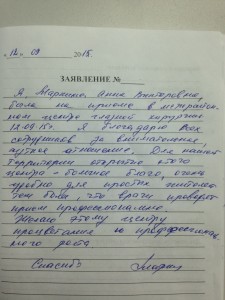 «12» 09 2018.
ЗАЯВЛЕНИЕ №
Я Маркина Анна Викторовна,
была на приеме в межрайон-
ном центре глазной хирургии
12.09.18г. Я благодарю всех
сотрудников за внимательное,
чуткое отношение. Для нашей
территории открытие этого
центра - большое благо, очень
удобно для простых жителей.
Тем более, что врачи проводят
прием профессионально.
Желаю этому центру
процветания и профессиональ-
ного роста
Спасибо